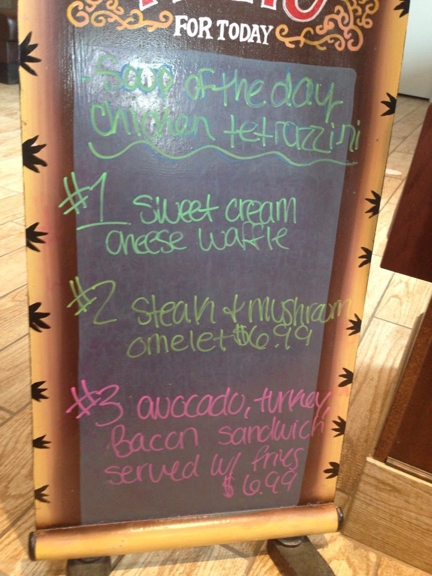 FOR TODAY
Soup of the day
chicken tetrazzini
#1 Sweet cream
cheese waffle
#2 Steak & mushroom
omelet $6.99
#3 avocado, turkey,
Bacon sandwich
served w/ fries
$6.99